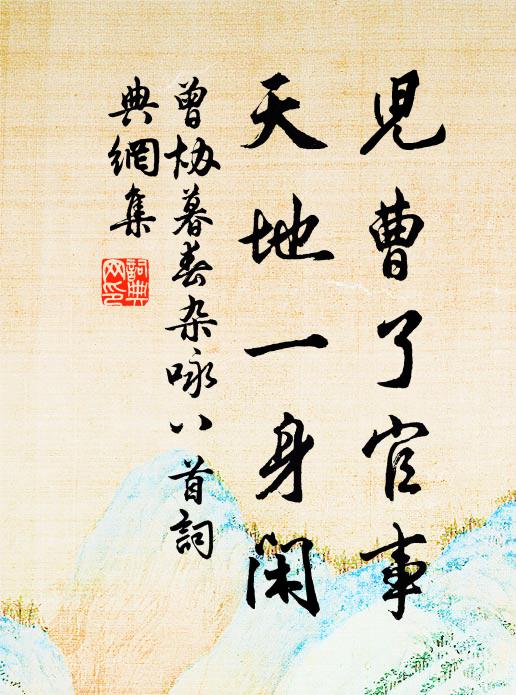 児曹了官事
天地一身閑
曾協暮春杂咏八首詞
典網集
詞典
网印